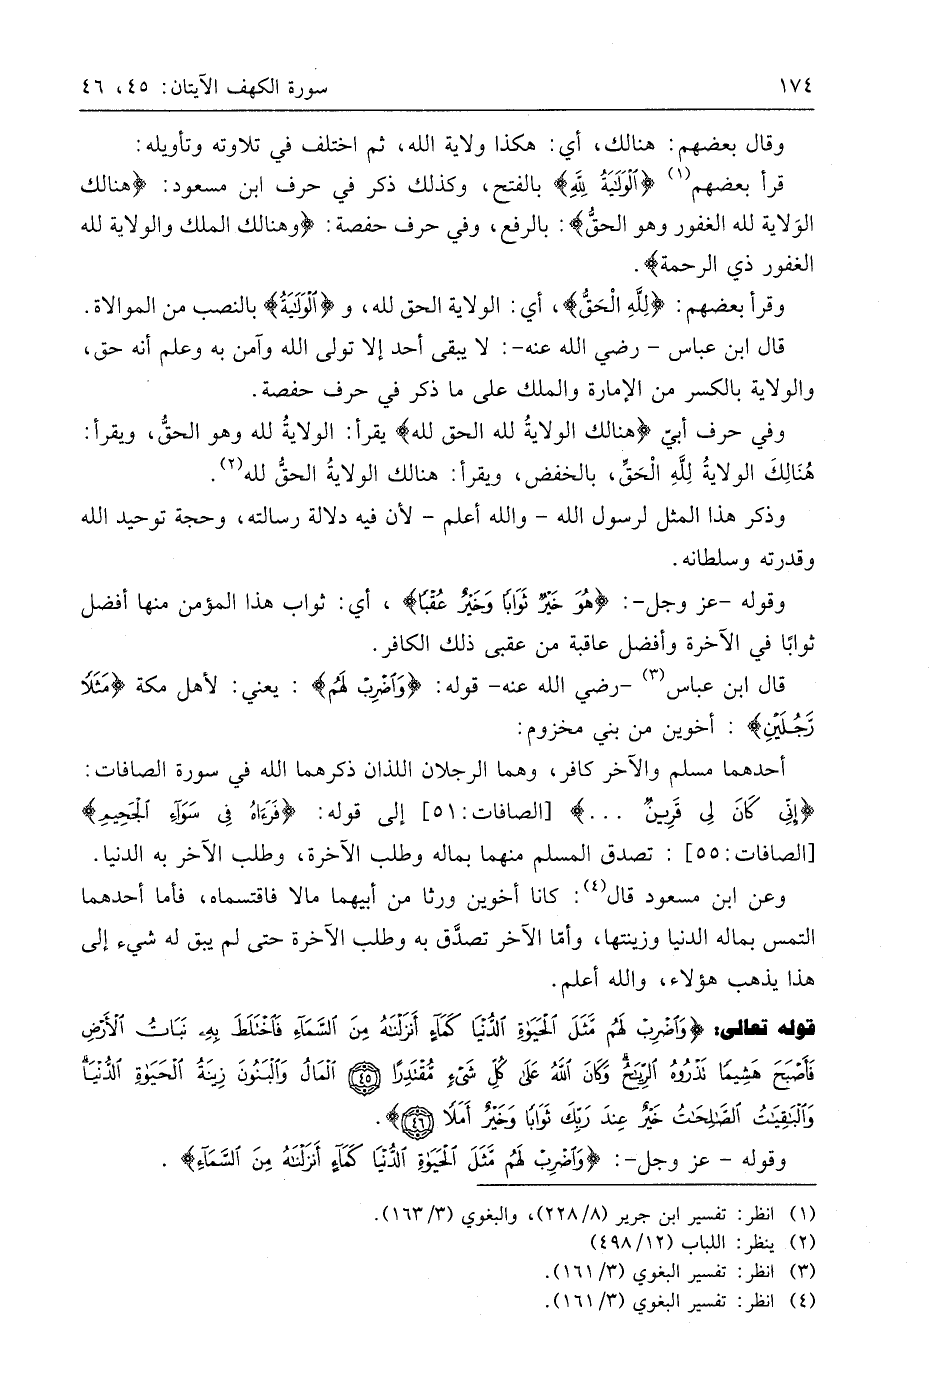 ١٧٤ سورة الكهف الآيتان: ٤٥، ٤٦
وقال بعضهم: هنالك، أي: هكذا ولاية الله، ثم اختلف في تلاوته وتأويله:
قرأ بعضهم(١) ﴿ٱلۡوَلَٰيَةُ لِلَّهِ﴾ بالفتح، وكذلك ذكر في حرف ابن مسعود: ﴿هنالك
الوَلاية لله الغفور وهو الحقُّ﴾: بالرفع، وفي حرف حفصة: ﴿وهنالك الملك والولاية لله
الغفور ذي الرحمة﴾.
وقرأ بعضهم: ﴿لِلَّهِ الْحَقُّ﴾، أي: الولاية الحق لله، و ﴿ٱلۡوَلَٰيَةُ﴾ بالنصب من الموالاة.
قال ابن عباس - رضي الله عنه-: لا يبقى أحد إلا تولى الله وآمن به وعلم أنه حق،
والولاية بالكسر من الإمارة والملك على ما ذكر في حرف حفصة.
وفي حرف أبيّ ﴿هنالك الولايةُ لله الحق لله﴾ يقرأ: الولايةُ لله وهو الحقُّ، ويقرأ:
هُنَالِكَ الولايةُ لِلَّهِ الْحَقِّ، بالخفض، ويقرأ: هنالك الولايةُ الحقُّ لله(٢).
وذكر هذا المثل لرسول الله - والله أعلم - لأن فيه دلالة رسالته، وحجة توحيد الله
وقدرته وسلطانه.
وقوله -عز وجل-: ﴿هُوَ خَيۡرٞ ثَوَابٗا وَخَيۡرٌ عُقۡبٗا﴾ ، أي: ثواب هذا المؤمن منها أفضل
ثوابًا في الآخرة وأفضل عاقبة من عقبى ذلك الكافر.
قال ابن عباس(٣) -رضي الله عنه- قوله: ﴿وَٱضۡرِبۡ لَهُم﴾ : يعني: لأهل مكة ﴿مَثَلٗا
رَّجُلَيۡنِ﴾ : أخوين من بني مخزوم:
أحدهما مسلم والآخر كافر، وهما الرجلان اللذان ذكرهما الله في سورة الصافات:
﴿إِنِّي كَانَ لِي قَرِينٞ ...﴾ [الصافات:٥١] إلى قوله: ﴿فَرَءَاهُ فِي سَوَآءِ ٱلۡجَحِيمِ﴾
[الصافات:٥٥] : تصدق المسلم منهما بماله وطلب الآخرة، وطلب الآخر به الدنيا.
وعن ابن مسعود قال(٤): كانا أخوين ورثا من أبيهما مالا فاقتسماه، فأما أحدهما
التمس بماله الدنيا وزينتها، وأمّا الآخر تصدَّق به وطلب الآخرة حتى لم يبق له شيء إلى
هذا يذهب هؤلاء، والله أعلم.
قوله تعالى: ﴿وَٱضۡرِبۡ لَهُم مَّثَلَ ٱلۡحَيَوٰةِ ٱلدُّنۡيَا كَمَآءٍ أَنزَلۡنَٰهُ مِنَ ٱلسَّمَآءِ فَٱخۡتَلَطَ بِهِۦ نَبَاتُ ٱلۡأَرۡضِ
فَأَصۡبَحَ هَشِيمٗا تَذۡرُوهُ ٱلرِّيَٰحُۗ وَكَانَ ٱللَّهُ عَلَىٰ كُلِّ شَيۡءٖ مُّقۡتَدِرًا ٤٥ ٱلۡمَالُ وَٱلۡبَنُونَ زِينَةُ ٱلۡحَيَوٰةِ ٱلدُّنۡيَاۖ
وَٱلۡبَٰقِيَٰتُ ٱلصَّٰلِحَٰتُ خَيۡرٌ عِندَ رَبِّكَ ثَوَابٗا وَخَيۡرٌ أَمَلٗا ٤٦﴾.
وقوله - عز وجل-: ﴿وَٱضۡرِبۡ لَهُم مَّثَلَ ٱلۡحَيَوٰةِ ٱلدُّنۡيَا كَمَآءٍ أَنزَلۡنَٰهُ مِنَ ٱلسَّمَآءِ﴾ .
(١) انظر: تفسير ابن جرير (٢٢٨/٨)، والبغوي (١٦٣/٣).
(٢) ينظر: اللباب (٤٩٨/١٢)
(٣) انظر: تفسير البغوي (١٦١/٣).
(٤) انظر: تفسير البغوي (١٦١/٣).